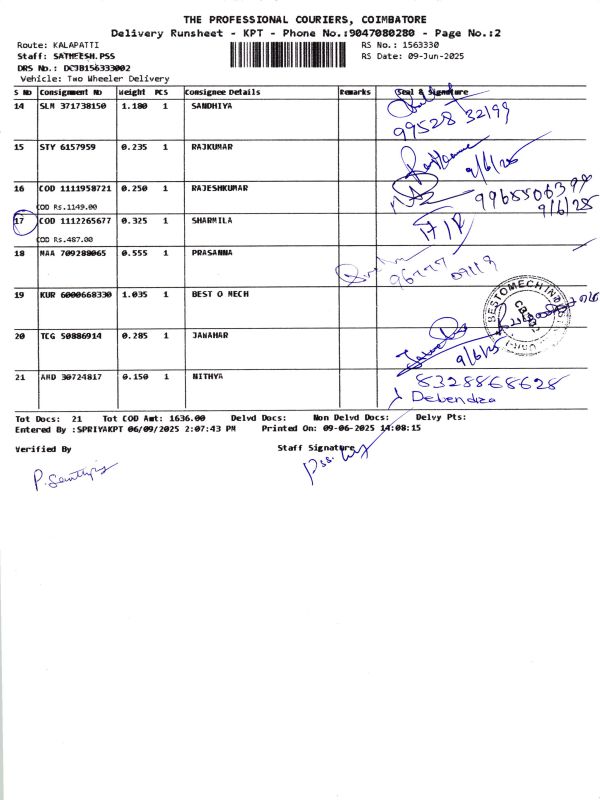 THE PROFESSIONAL COURIERS, COIMBATORE
Delivery Runsheet - KPT - Phone No.:9047080280 - Page No.:2
Route: KALAPATTI
RS No.: 1563330
Staff: SATHEESH.PSS
RS Date: 09-Jun-2025
DRS No.: DC3B156333002
Vehicle: Two Wheeler Delivery
S NO Consignment NO Weight PCS Consignee Details Remarks Seal & Signature
14 SLM 371738150 1.180 1 SANDHIYA
99528 32199
15 STY 6157959 0.235 1 RAJKUMAR
9/6/25
16 COD 1111958721 0.250 1 RAJESHKUMAR
COD Rs.1149.00
9/6/25
17 COD 1112265677 0.325 1 SHARMILA
COD Rs.487.00
18 MAA 709288065 0.555 1 PRASANNA
19 KUR 6000668330 1.035 1 BEST O MECH
20 TCG 50886914 0.285 1 JAWAHAR
9/6/25
21 AMD 30724817 0.150 1 NITHYA
8328868628
Tot Docs: 21 Tot COD Amt: 1636.00 Delvd Docs: Non Delvd Docs: Delvy Pts:
Entered By :SPRIYAKPT 06/09/2025 2:07:43 PM Printed On: 09-06-2025 14:08:15
Verified By Staff Signature